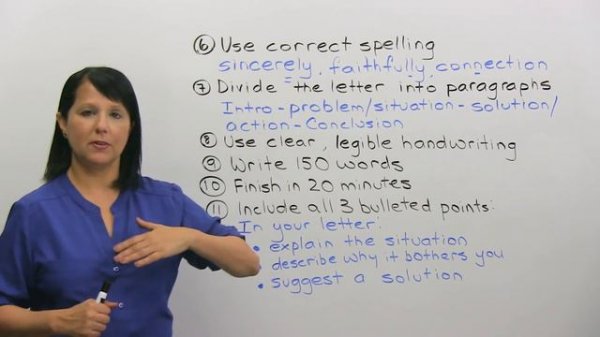 ⑥ Use correct spelling
sincerely, faithfully, connection
⑦ Divide the letter into paragraphs
Intro - problem/situation - solution/
action - Conclusion
⑧ Use clear, legible handwriting
⑨ Write 150 words
⑩ Finish in 20 minutes
⑪ Include all 3 bulleted points:
In your letter:
• explain the situation
• describe why it bothers you
• suggest a solution